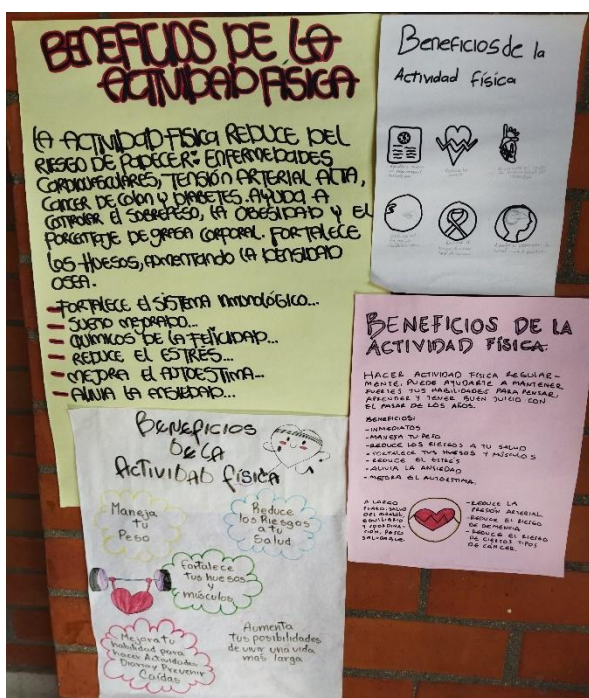 BENEFICIOS DE LA
ACTIVIDAD FÍSICA
LA ACTIVIDAD FISICA REDUCE DEL
RIESGO DE PADECER: ENFERMEDADES
CARDIOVASCULARES, TENSIÓN ARTERIAL ALTA,
CANCER DE COLON Y DIABETES. AYUDA A
CONTROLAR El SOBREPESO, LA OBESIDAD Y EL
PORCENTAJE DE GRASA CORPORAL. FORTALECE
LOS HUESOS, AUMENTANDO LA DENSIDAD
OSEA.
- FORTALECE El SISTEMA INMONOLÓGICO...
- SUEÑO MEJORADO...
- QUÍMICOS DE LA FELICIDAD...
- REDUCE EL ESTRÉS...
- MEJORA EL AUTOESTIMA...
- ALIVIA LA ANSIEDAD...
Beneficios de la
Actividad física
BENEFICIOS DE LA
ACTIVIDAD FÍSICA
HACER ACTIVIDAD FÍSICA REGULAR-
MENTE, PUEDE AYUDARTE A MANTENER
FUERTES TUS HABILIDADES PARA PENSAR,
APRENDER Y TENER BUEN JUICIO CON
EL PASAR DE LOS AÑOS.
BENEFICIOS:
- INMEDIATOS
- MANEJA TU PESO
- REDUCE LOS RIESGOS A TU SALUD
- FORTALECE TUS HUESOS Y MÚSCULOS
- REDUCE EL ESTRÉS
- ALIVIA LA ANSIEDAD
- MEJORA EL AUTOESTIMA.
A LARGO
PLAZO: SALUD
EQUILIBRIO
Y COORDINA-
CIÓN, PESO
SALUDABLE
- REDUCE LA
PRESIÓN ARTERIAL
- REDUCE EL RIESGO
DE DEMENCIA
- REDUCE EL RIESGO
DE CIERTOS TIPOS
DE CANCER.
BENEFICIOS
DE LA
ACTIVIDAD física
Maneja
tu
Peso
Reduce
los Riesgos
a tu
Salud
Fortalece
tus huesos
y
músculos
Mejora tu
habilidad para
hacer Actividades
Diarias y Prevenir
Caídas
Aumenta
tus posibilidades
de vivir una vida
más larga